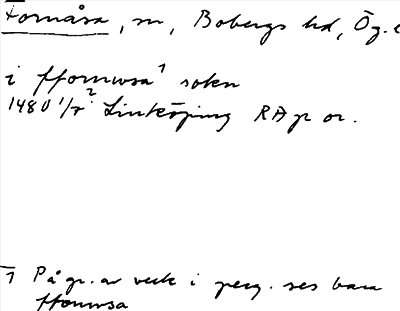 Fornåsa, sn, Bobergs hd, Ög.
i ffornwsa¹ sokn
1480 1/7² Linköping RAp or.
1 På gr. av veck i perg. ses bara
ffornwsa